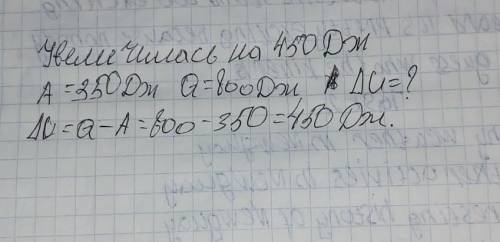 Увеличилась на 450 Дж
A = 350 Дж Q = 800 Дж ΔU = ?
ΔU = Q - A = 800 - 350 = 450 Дж.